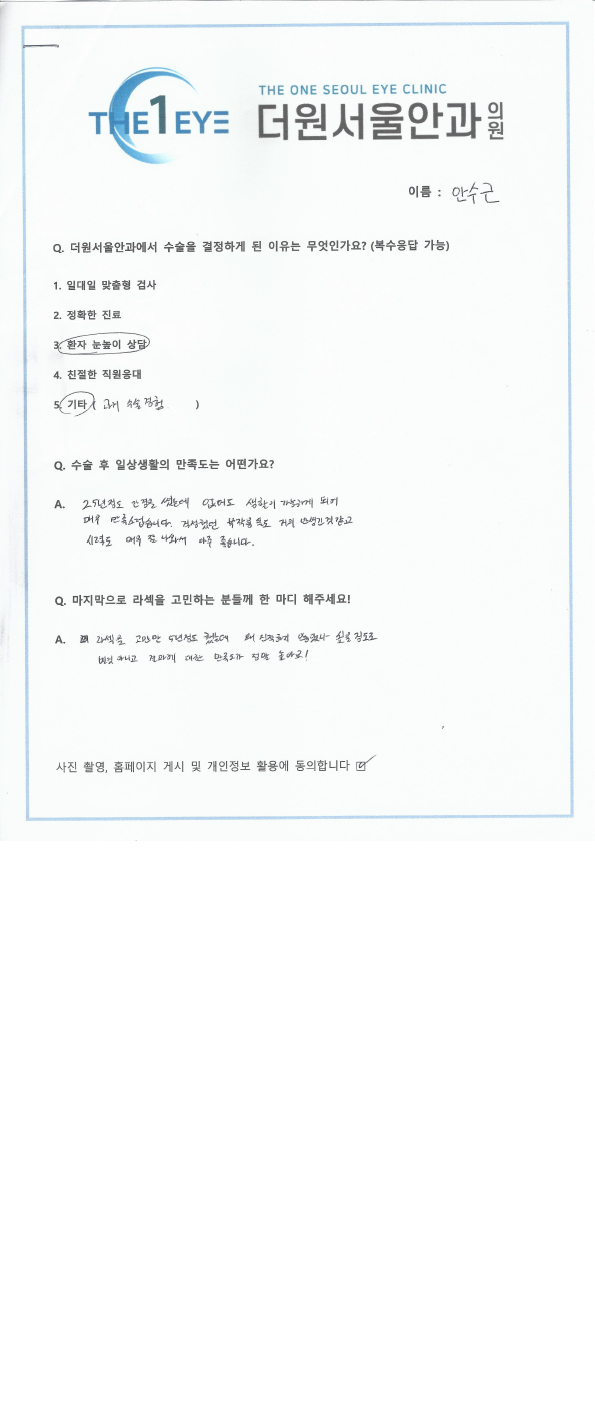 THE 1 EYE
THE ONE SEOUL EYE CLINIC
더원서울안과의원
이름 : 안수근
Q. 더원서울안과에서 수술을 결정하게 된 이유는 무엇인가요? (복수응답 가능)
1. 일대일 맞춤형 검사
2. 정확한 진료
3. 환자 눈높이 상담
4. 친절한 직원응대
5. 기타 ( 수술 경험 )
Q. 수술 후 일상생활의 만족도는 어떤가요?
A. 25년정도 안경을 썼는데 없어도 생활이 가능하게 되어
매우 만족스럽습니다. 걱정했던 부작용 등도 거의 안생긴것같고
시력도 매우 잘 나와서 아주 좋습니다.
Q. 마지막으로 라섹을 고민하는 분들께 한 마디 해주세요!
A. 라섹을 고민만 5년정도 했는데 왜 진작하지 않았나 싶을 정도로
별것 아니고 결과에 대한 만족도가 정말 높아요!
사진 촬영, 홈페이지 게시 및 개인정보 활용에 동의합니다 ☑